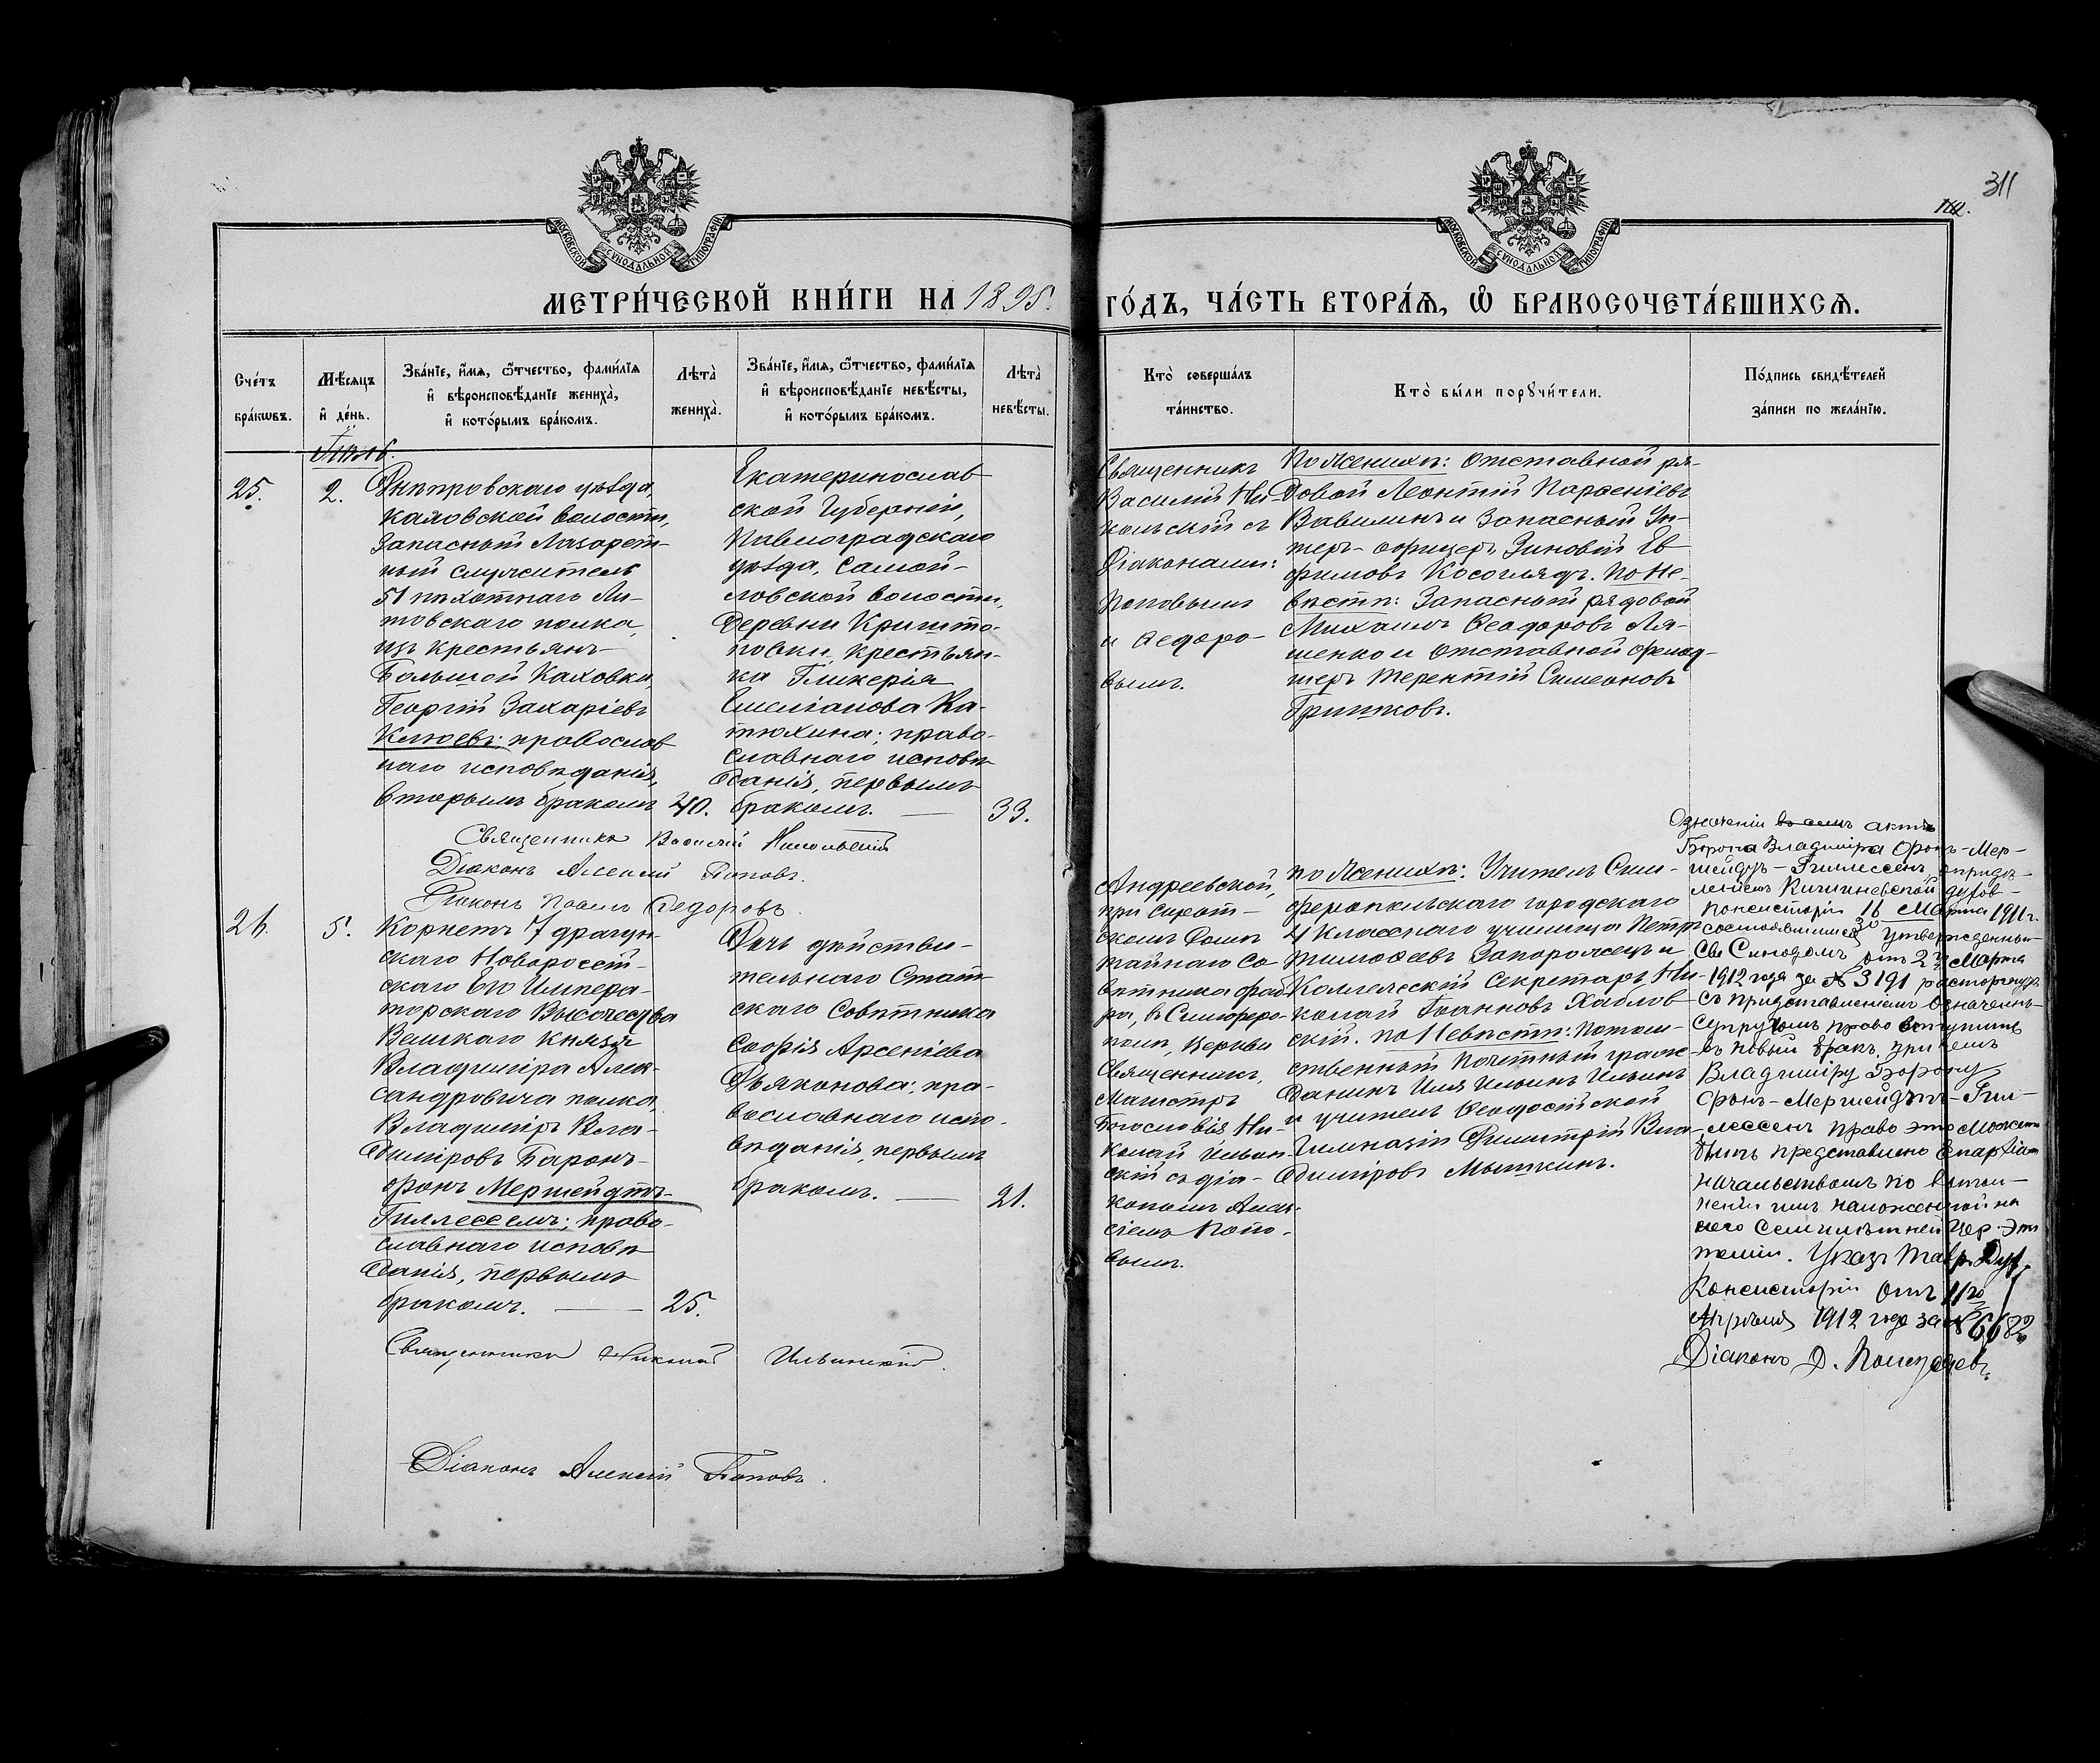 311
МОСКОВСКОЙ СѴНОДАЛЬНОЙ ТИПОГРАФІИ
МОСКОВСКОЙ СѴНОДАЛЬНОЙ ТИПОГРАФІИ
МЕТРИ́ЧЕСКОЙ КНИ́ГИ НА 1895.
ГО́ДЪ, ЧА́СТЬ ВТОРА́Я, Ѡ БРАКОСОЧЕТА́ВШИХСѦ.
Сче́тъ
бра́кωвъ.
Мѣ́сяцъ
и҆ де́нь.
Зва́нїе, и҆́мя, ѻ҆́тчество, фами́лїя
и҆ вѣроисповѣ́данїе жениха̀,
и҆ кото́рымъ бра́комъ.
Лѣта̀
жениха̀.
Зва́нїе, и҆́мя, ѻ҆́тчество, фами́лїя
и҆ вѣроисповѣ́данїе невѣ́сты,
и҆ кото́рымъ бра́комъ.
Лѣта̀
невѣ́сты.
Кто̀ соверша́лъ
та́инство.
Кто̀ бы́ли порꙋчи́тели.
По́дпись свидѣ́телей
за́писи по жела́нїю.
Іюль.
25.
2.
Днѣпровскаго уѣзда,
Каховской волости,
Запасный Лазарет-
ный служитель
51 пѣхотнаго Ли-
товскаго полка,
изъ крестьянъ
Большой Каховки,
Георгій Захаріевъ
Клюевъ; православ
наго исповѣданія,
вторымъ бракомъ
40.
Екатеринослав
ской Губерніи,
Павлоградскаго
уѣзда, Самой-
ловской волости,
деревни Кришто-
повки, крестьян-
ка Гликерія
Емеліанова Ка-
тюхина; право-
славнаго исповѣ
данія, первымъ
бракомъ.
33.
Священникъ
Василій Ни-
кольскій съ
Діаконами:
Поповымъ
и Ѳедоро-
вымъ.
По Женихѣ: Отставной ря-
довой Леонтій Парѳеніевъ
Вавилинъ и Запасный Ун-
теръ-офицеръ Зиновій Ев
фимовъ Косоглядъ. По Не-
вѣстѣ: Запасный рядовой
Михаилъ Ѳеодоровъ Ля-
шенко и Отставной фельд-
шеръ Терентій Симеоновъ
Гришковъ.
Священникъ Василій Никольскій
Діаконъ Алексій Поповъ.
Діаконъ Павелъ Ѳедоровъ.
26.
5.
Корнетъ 7 драгун-
скаго Новороссій-
скаго Его Импера-
торскаго Высочества
Великаго Князя
Владиміра Алек-
сандровича полка,
Владиміръ Вла-
диміровъ Баронъ-
фонъ Мершейдтъ-
Гиллессемъ; право-
славнаго исповѣ
данія, первымъ
бракомъ.
25.
Дочь дѣйстви-
тельнаго Стат-
скаго Совѣтника
Софія Арсеніева
Дьяконова; пра-
вославнаго испо-
вѣданія, первымъ
бракомъ.
21.
Андреевской,
при Сирот-
скомъ Домѣ
тайнаго Со-
вѣтника Фаб-
ра, въ Симферо-
полѣ, Церкви
Священникъ,
Магистръ
Богословія Ни-
колай Ильин-
скій съ діа-
кономъ Алек-
сіемъ Попо-
вымъ.
по Женихѣ: Учитель Сим-
феропольскаго городскаго
4 Класснаго училища Петръ
Тимоѳеевъ Запорожецъ и
Коллежскій Секретарь Ни-
колай Іоанновъ Хаблов-
скій. по Невѣстѣ: Потом-
ственный Почетный граж-
данинъ Илія Ильинъ Ильинъ
и учитель Ѳеодосійской
Гимназіи Димитрій Вла-
диміровъ Мышкинъ.
Означеніи въ семъ актѣ
Барона Владиміра Фонъ-Мер-
шейдтъ-Гиллессемъ, опредѣ-
леніемъ Кишиневской духов-
Консисторіи 16 Марта 1911 г.
состоявшимся утвержденнымъ
Св. Синодомъ отъ 2го Марта
1912 года за № 3191 расторгнутъ
съ предоставленіемъ означен-
супругомъ право вступить
въ новый бракъ, при чемъ
Владиміру Барону
Фонъ-Мершейдтъ-Гил-
лессемъ право это можетъ
быть предоставлено Епархіал
начальствомъ по выпол-
неніи имъ наложенной на
него Семилѣтней Цер. Эпи
теміи. Указъ Тавр. Дух.
Консисторіи отъ 11го
Апрѣля 1912 года за № 6682
Діаконъ Д.
Священникъ Николай Ильинскій.
Діаконъ Алексій Поповъ.